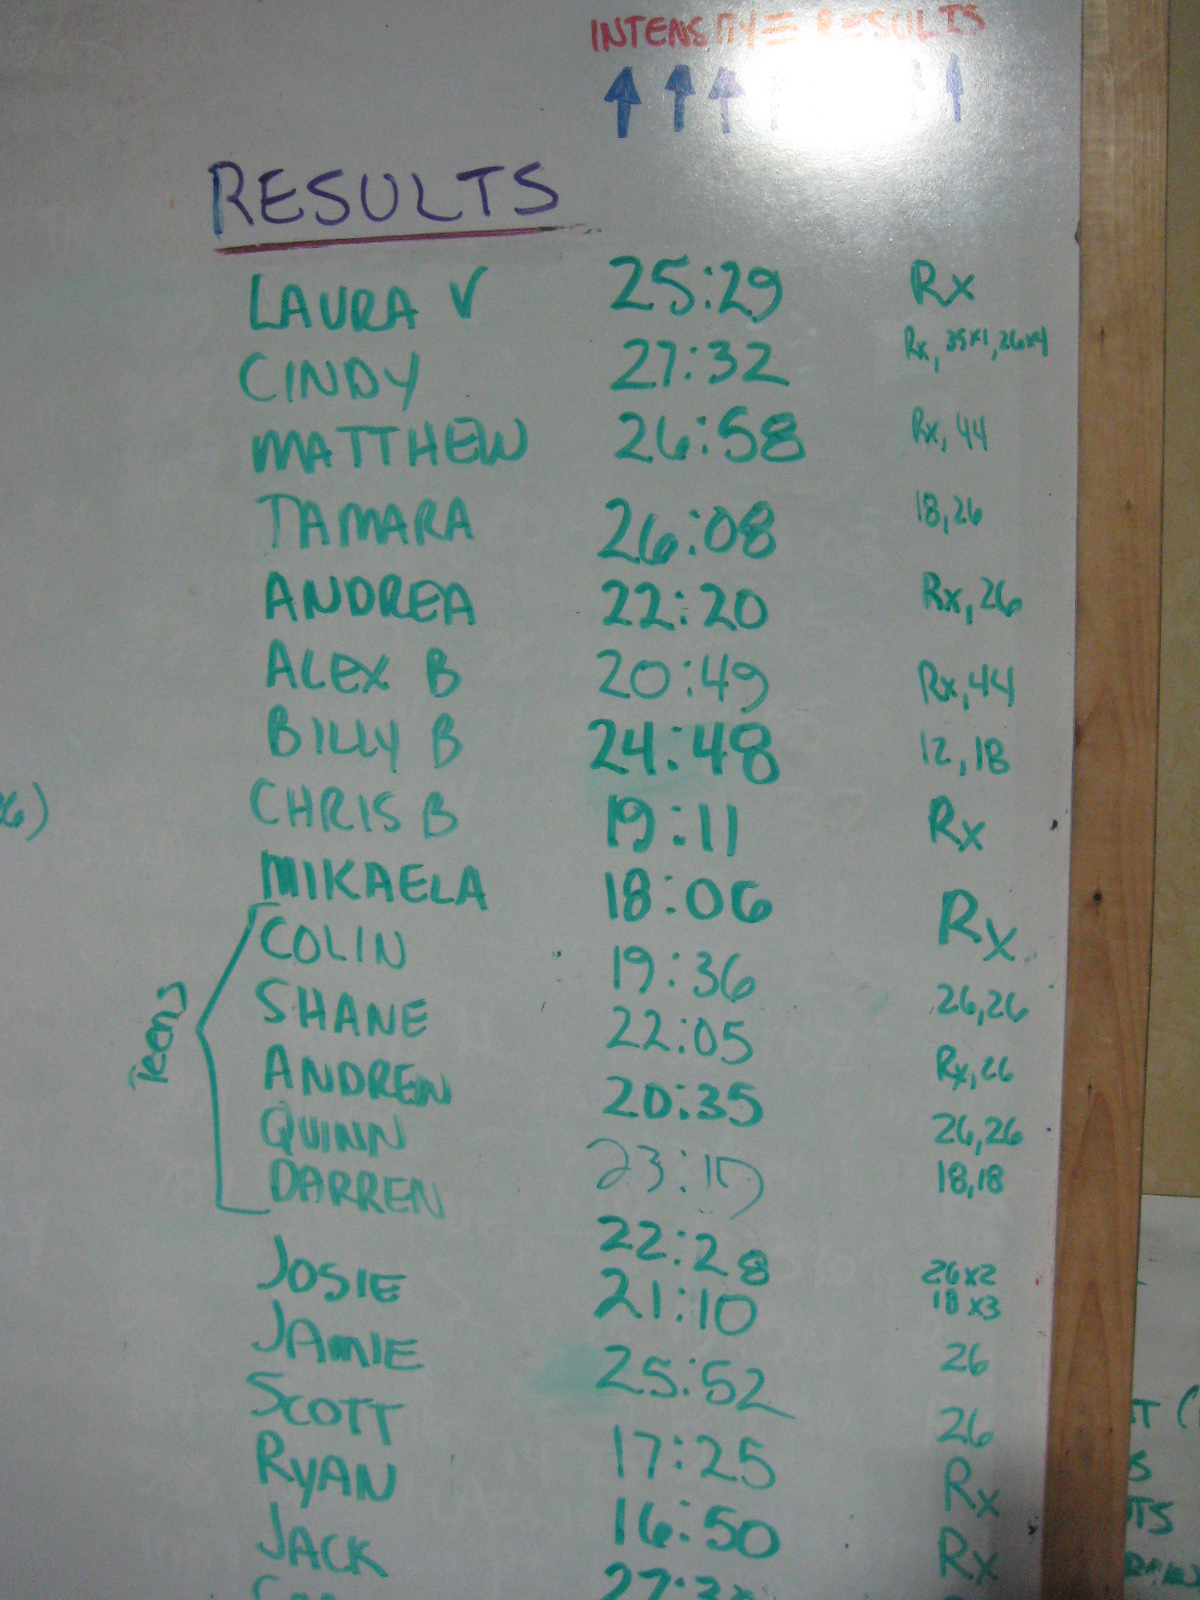 INTENSITY = RESULTS
RESULTS
LAURA V 25:29 Rx
CINDY 27:32 Rx, 35x1, 26x4
MATTHEW 26:58 Rx, 44
TAMARA 26:08 18,26
ANDREA 22:20 Rx, 26
ALEX B 20:49 Rx, 44
BILLY B 24:48 12, 18
CHRIS B 19:11 Rx
MIKAELA 18:06 Rx
Teens
COLIN 19:36 26,26
SHANE 22:05 Rx, 26
ANDREW 20:35 26,26
QUINN 18,18
DARREN 22:28 26x2
18x3
JOSIE 21:10 26
JAMIE 25:52 26
SCOTT 17:25 Rx
RYAN 16:50 Rx
JACK